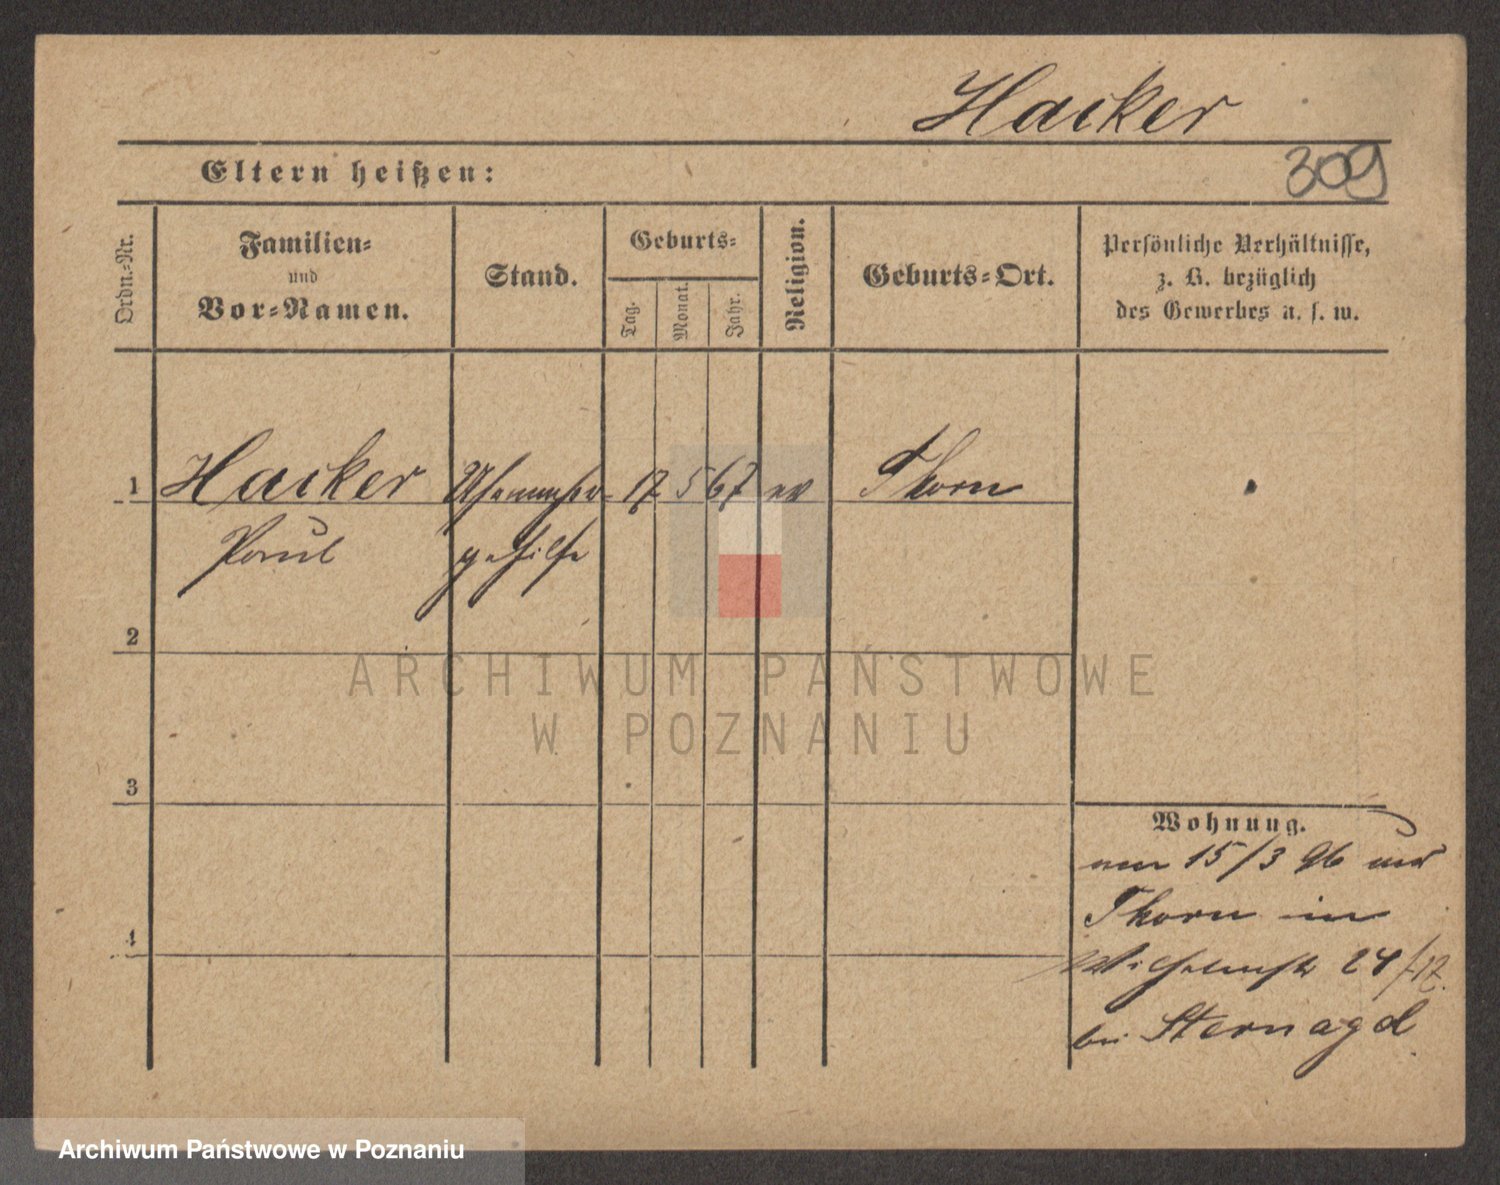 Hacker
309
Eltern heißen:
Ordn.-Nr.
Familien-
und
Vor-Namen.
Stand.
Geburts-
Tag.
Monat.
Jahr.
Religion.
Geburts-Ort.
Persönliche Verhältnisse,
z. B. bezüglich
des Gewerbes u. s. w.
1 Hacker Uhrmacher- 17 5 67 ev Thorn
Paul gehilfe
2
ARCHIWUM PAŃSTWOWE
W POZNANIU
3
Wohnung.
15/3 96 aus
Thorn in
Wilhelmstr 24/
bei Sternagd
4
Archiwum Państwowe w Poznaniu